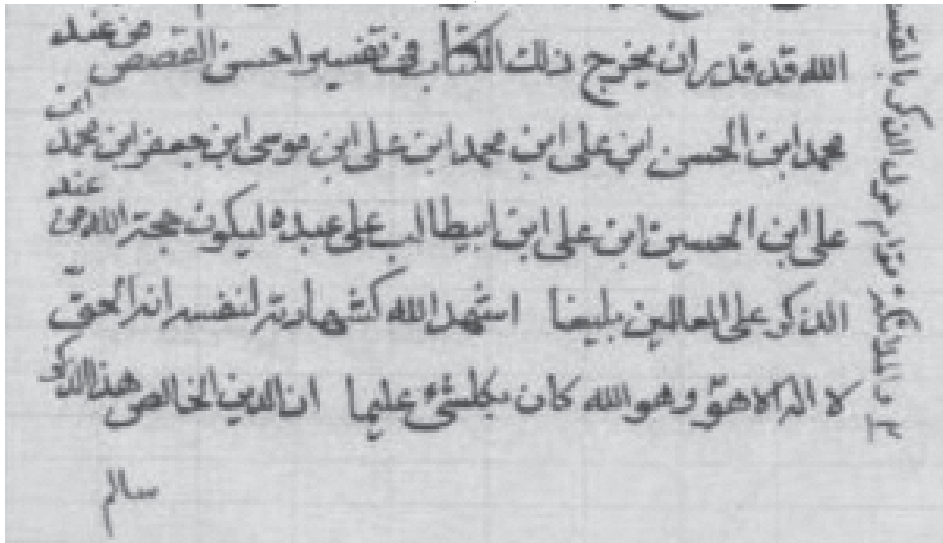 الله قد قدر ان يخرج ذلك الكتاب فى تفسير احسن القصص من عند
محمد ابن الحسن ابن على ابن محمد ابن على ابن موسى ابن جعفر ابن محمد ابن
على ابن الحسين ابن على ابن ابيطالب على عبده ليكون حجة الله من عند
الذكر على العالمين بليغا اشهد الله كشهادته لنفسه انه الحق
لا اله الا هو و هو الله كان بكلشئ عليما ان الدين الخالص هذا الذكر
سالم